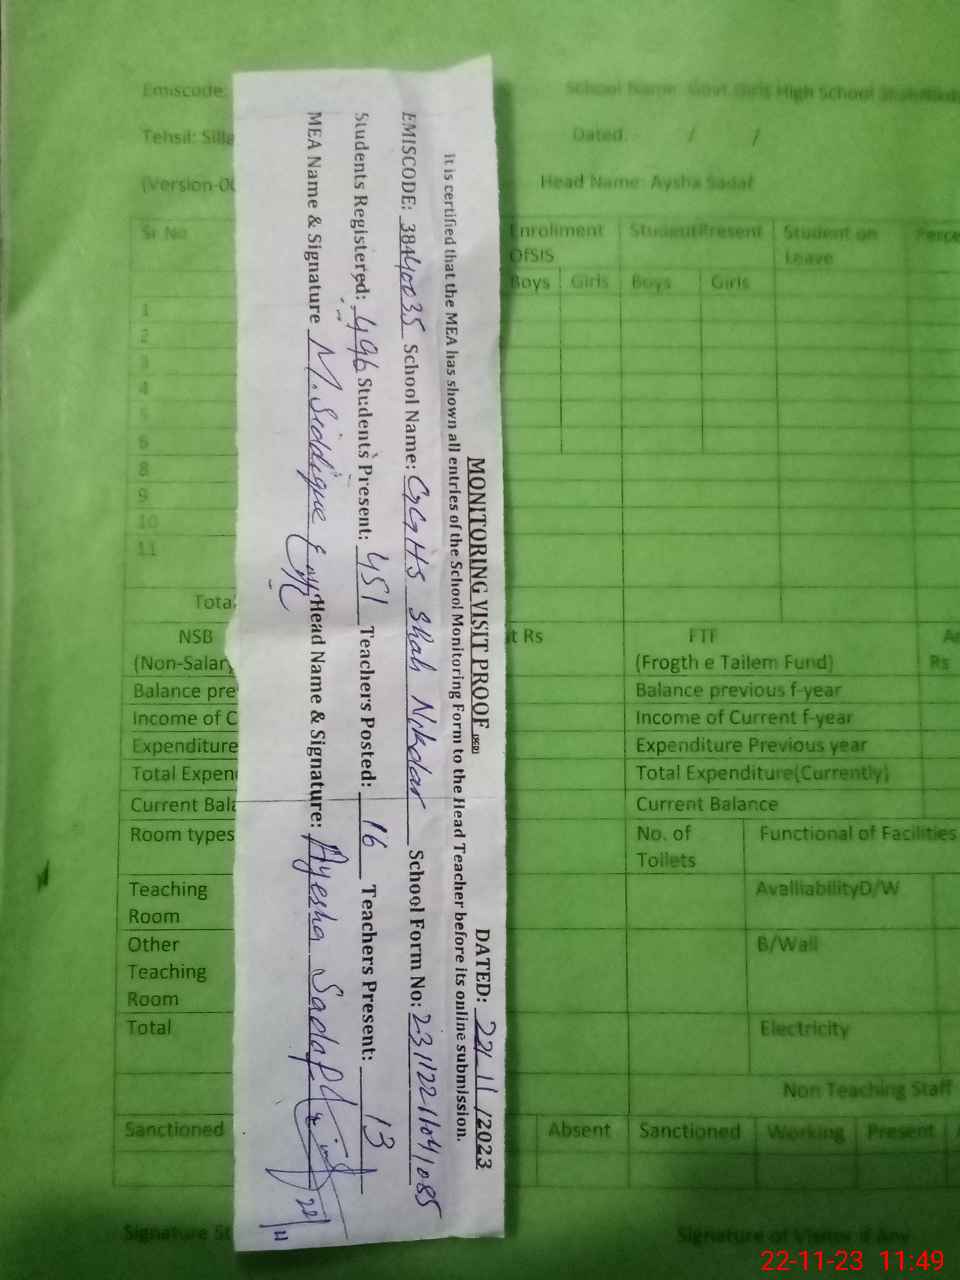 MONITORING VISIT PROOF (SED) DATED: 22/11/2023
It is certified that the MEA has shown all entries of the School Monitoring Form to the Head Teacher before its online submission.
EMISCODE: 38440035 School Name: GGHS Shah Nikdar School Form No: 23112211041085
Students Registered: 496 Students Present: 451 Teachers Posted: 16 Teachers Present: 13
MEA Name & Signature M. Siddique Head Name & Signature: Ayesha Sadaf
22/11
Emiscode: School Name: Govt Girls High School
Tehsil: Dated: / /
(Version- Head Name: Aysha Sadaf
Sr No Enrollment OfSIS Student Present Student on Leave
Boys Girls Boys Girls
1
2
3
4
5
6
8
9
10
11
Total
NSB t Rs FTF
(Non-Salary (Frogth e Tailem Fund) Rs
Balance pre Balance previous f-year
Income of C Income of Current f-year
Expenditure Expenditure Previous year
Total Expen Total Expenditure(Currently)
Current Bala Current Balance
Room types No. of Toilets Functional of Facilities
Teaching Room AvailiabilityD/W
Other Teaching Room B/Wall
Total Electricity
Non Teaching Staff
Sanctioned Absent Sanctioned Working Present
Signature St Signature of Visitor if Any
22-11-23 11:49